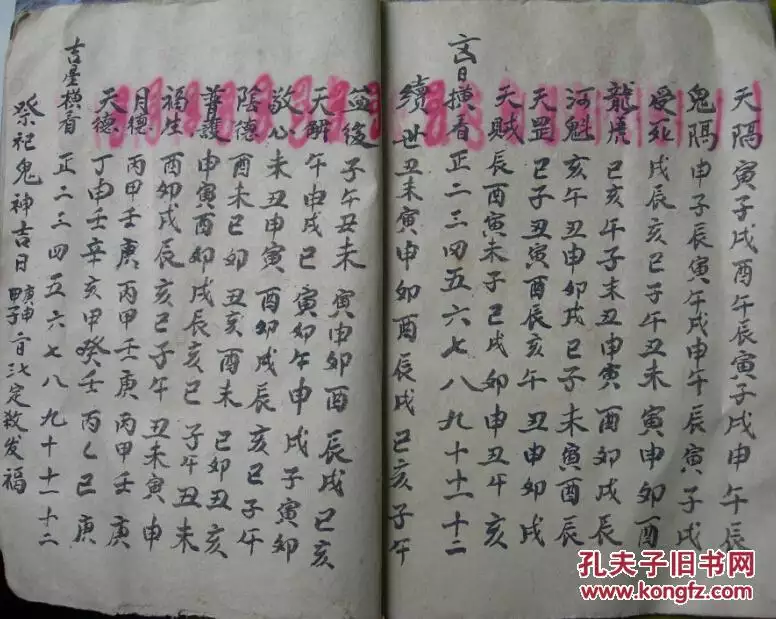 天隔寅子戌酉午辰寅子戌申午辰
鬼隔申子辰寅午戌申午辰寅子戌
受死戌辰亥巳子午丑未寅申卯酉
龍虎巳亥午子未丑申寅酉卯戌辰
河魁亥午丑申卯戌巳子未寅酉辰
天罡巳子丑寅酉辰亥午丑申卯戌
天贼辰酉寅未子巳戌卯申丑午亥
日横看正二三四五六七八九十十一十二
續世丑未寅申卯酉辰戌巳亥子午
益後子午丑未寅申卯酉辰戌巳亥
天解午申戌巳寅卯午申戌子寅卯
敬心未丑申寅酉卯戌辰亥巳子午
陰德酉未巳卯丑亥酉未巳卯丑亥
普護申寅酉卯戌辰亥巳子午丑未
福生酉卯戌辰亥巳子午丑未寅申
月德丙甲壬庚丙甲壬庚丙甲壬庚
天德丁申壬辛亥甲癸壬丙乙巳庚
吉星横看正二三四五六七八九十十一十二
祭祀鬼神吉日庚申甲子二日定致发福
孔夫子旧书网